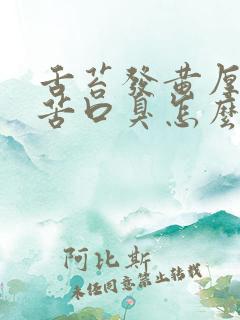 舌苔發黃厚
苦口臭怎麼
阿比斯
未經同意禁止轉載